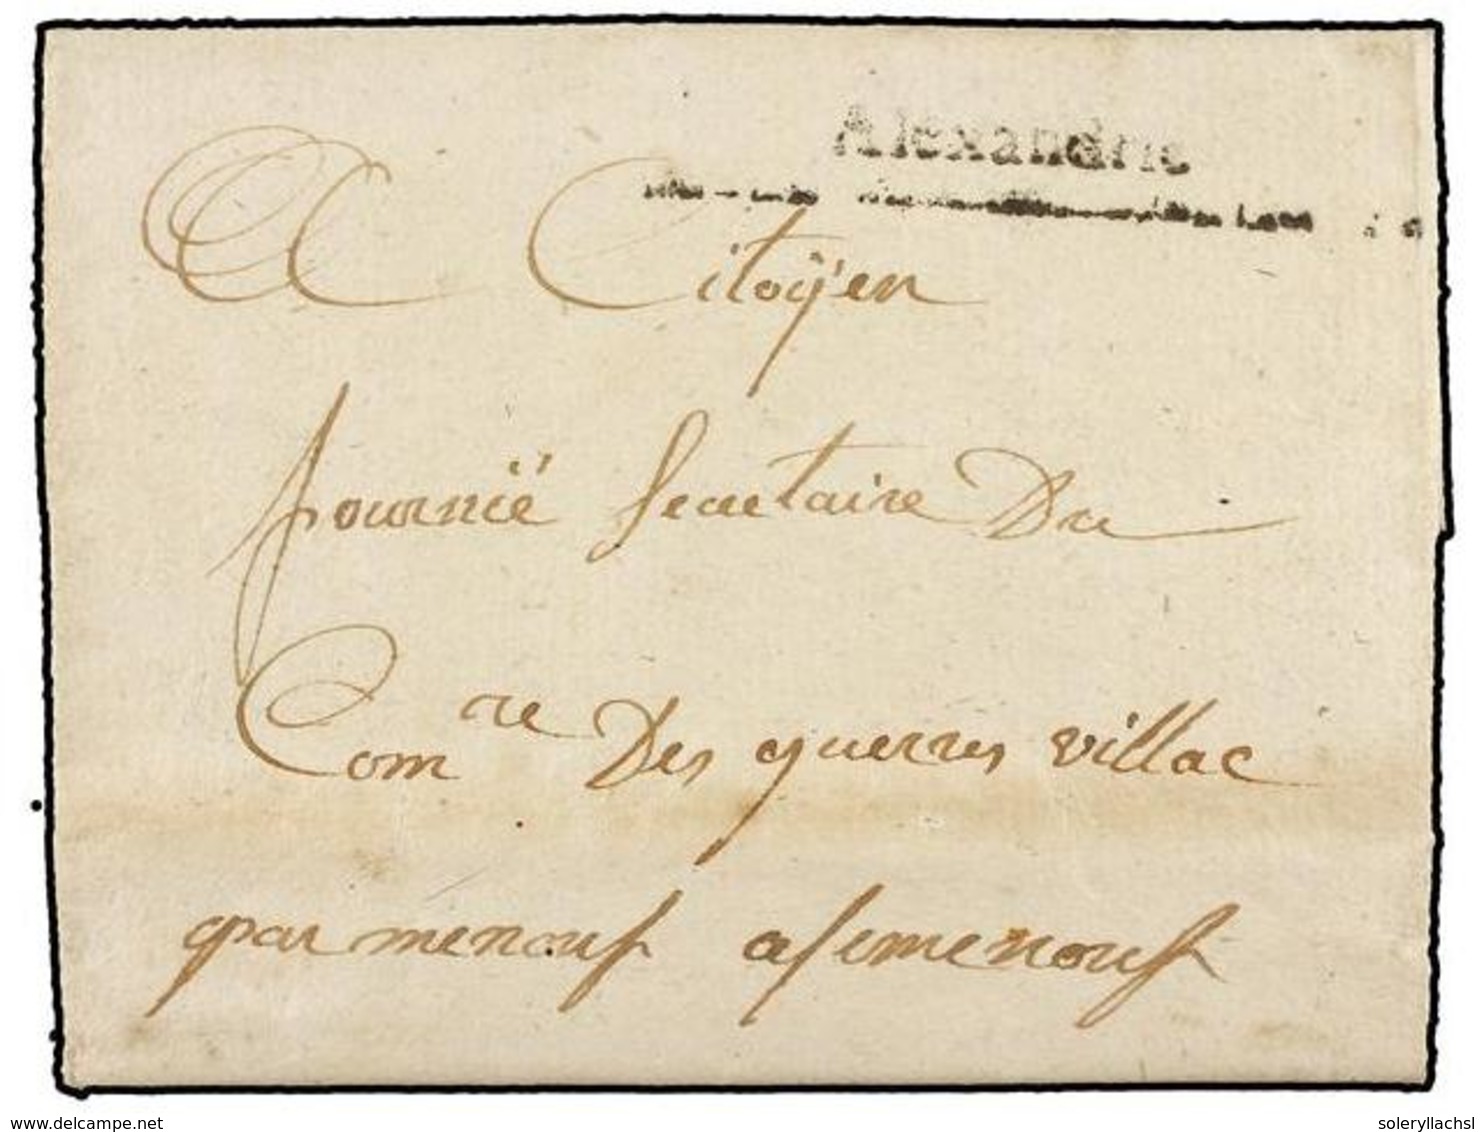 Alexandrie
A Citoÿen
fournié Secretaire Du
Com re Des guerres villac
par menouf a semenouf
www.delcampe.net
soleryllachsl